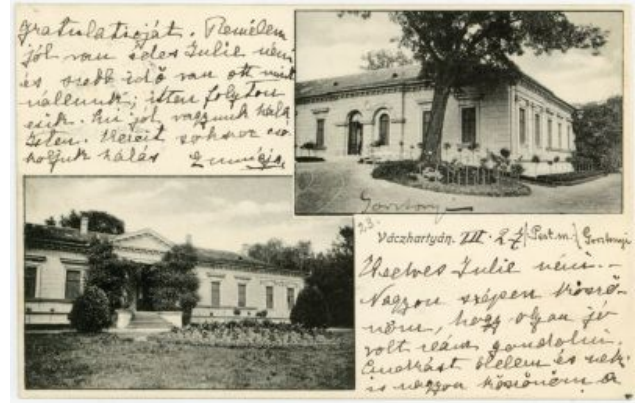 gratulatióját. Remélem
jól van édes Julie néni
és szebb idő van ott mint
nálunk; itten folyton
esik. Mi jól vagyunk hála
Isten. Kezeit sokszor
csókoljuk hálás
Váczhartyán. VII. 27. (Pest. m.) Gosztonyi
23.
Gosztony
Kedves Julie néni.-
Nagyon szépen köszö-
nöm, hogy olyan jó
volt reám gondolni.
és neki
is nagyon köszönöm a